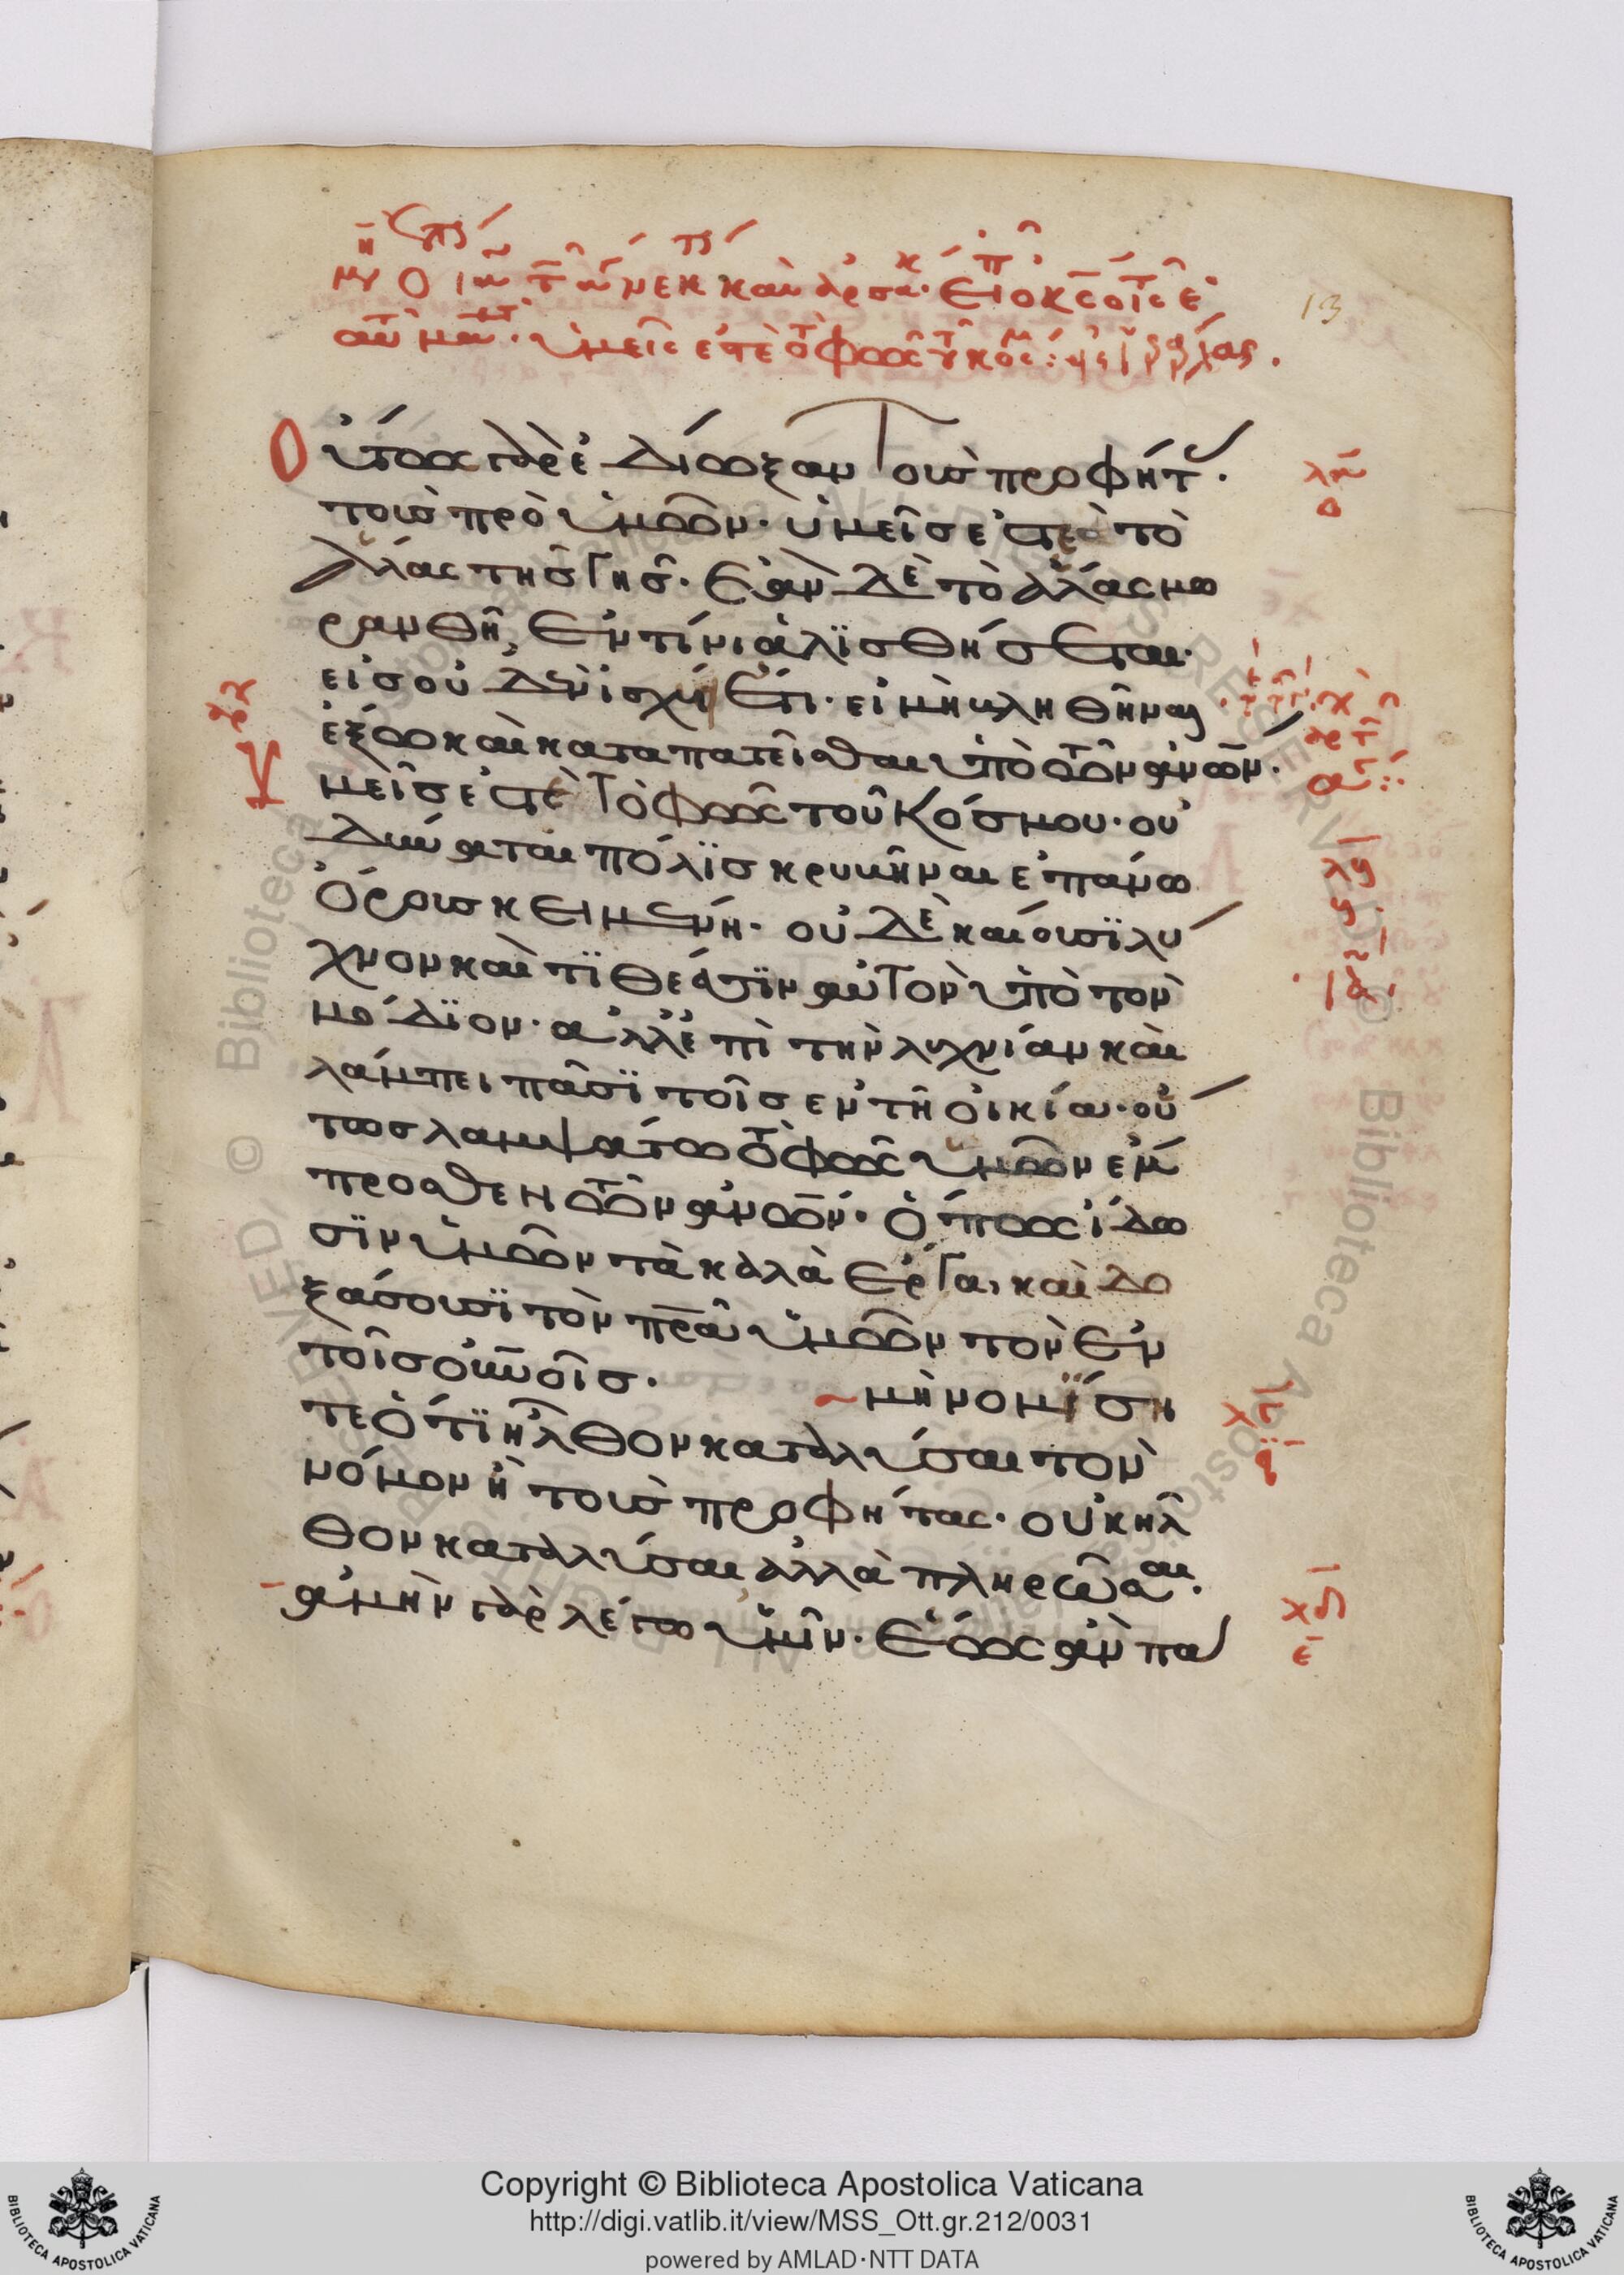 13
Οὕτως γὰρ ἐδίωξαν τοὺς προφήτ.
τοὺς πρὸ ὑμῶν· ὑμεῖς ἐστε τὸ
ἅλας τῆς γῆς. Ἐὰν δὲ τὸ ἅλας μω
ρανθῆ, ἐν τίνι ἁλϊσθήσεται·
εἰς οὐδὲν ἰσχύ ἔτι. εἰ μὴ βληθῆναι
ἔξω καὶ καταπατεῖσθαι ὑπὸ τῶν ἀνων.
μεῖς ἐστὲ τὸ φῶς τοῦ κόσμου· οὐ
δύναται πόλϊς κρυβῆναι ἐπάνω
ὄρους κειμένη· οὐδὲ καίουσϊ λύ
χνον καὶ τϊθέασϊν αὐτὸν ὑπὸ τὸν
μόδϊον· ἀλλ' ἐπὶ τὴν λυχνίαν καὶ
λάμπει πᾶσϊ τοῖς ἐν τῆ οἰκία· οὕ
τως λαμψάτω τὸ φῶς ὑμῶν ἔμ
προσθεν τῶν ἀνων· ὅπως ἴδω
σϊν ὑμῶν τὰ καλὰ ἔργα, καὶ δο
ξάσουσϊ τὸν πρα ὑμῶν τὸν ἐν
τοῖς οὐνοῖς. μὴ νομΐση
τε ὅτϊ ἦλθον καταλῦσαι τὸν
νόμον ἢ τοὺς προφήτας· οὐκ ἦλ
θον καταλῦσαι ἀλλὰ πληρῶσαι.
ἀμὴν γὰρ λέγω ὑμῖν· ἕως ἂν πα
Copyright © Biblioteca Apostolica Vaticana
http://digi.vatlib.it/view/MSS_Ott.gr.212/0031
powered by AMLAD·NTT DATA
BIBLIOTECA APOSTOLICA VATICANA
BIBLIOTECA APOSTOLICA VATICANA